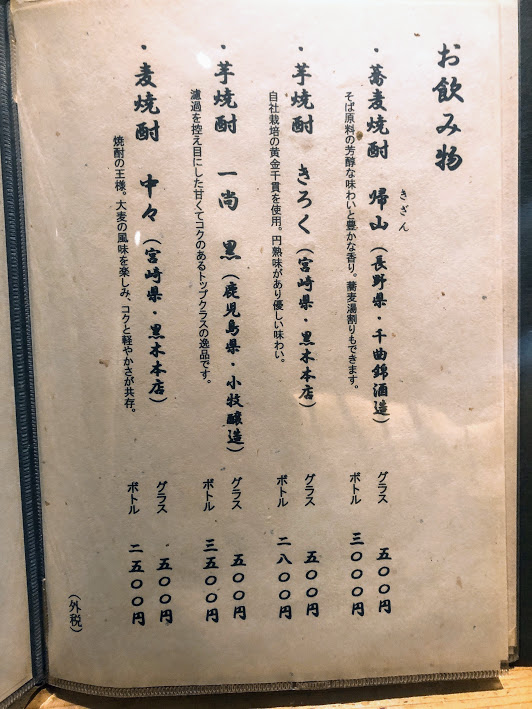 お飲み物
・蕎麦焼酎 帰山（長野県・千曲錦酒造）
きざん
そば原料の芳醇な味わいと豊かな香り。蕎麦湯割りもできます。
グラス 五〇〇円
ボトル 三〇〇〇円
・芋焼酎 きろく（宮崎県・黒木本店）
自社栽培の黄金千貫を使用。円熟味があり優しい味わい。
グラス 五〇〇円
ボトル 二八〇〇円
・芋焼酎 一尚 黒（鹿児島県・小牧醸造）
濾過を控え目にした甘くてコクのあるトップクラスの逸品です。
グラス 五〇〇円
ボトル 三五〇〇円
・麦焼酎 中々（宮崎県・黒木本店）
焼酎の王様。大麦の風味を楽しみ、コクと軽やかさが共存。
グラス 五〇〇円
ボトル 二五〇〇円
（外税）